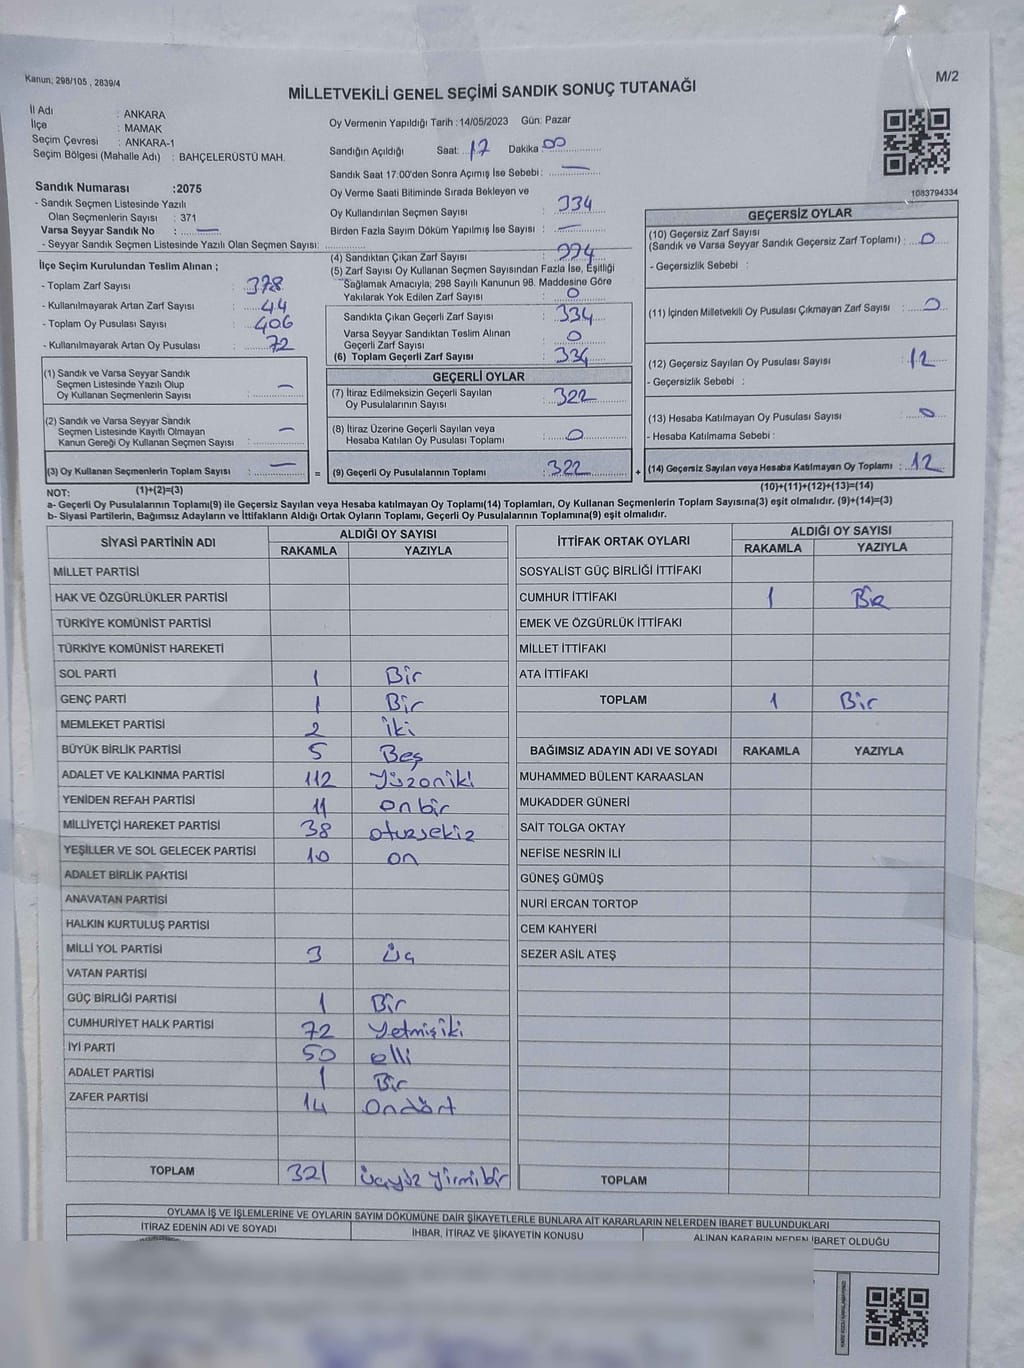 Kanun; 298/105 , 2839/4
M/2
MİLLETVEKİLİ GENEL SEÇİMİ SANDIK SONUÇ TUTANAĞI
İl Adı : ANKARA
İlçe : MAMAK
Seçim Çevresi : ANKARA-1
Seçim Bölgesi (Mahalle Adı) : BAHÇELERÜSTÜ MAH.
Sandık Numarası :2075
- Sandık Seçmen Listesinde Yazılı
Olan Seçmenlerin Sayısı : 371
Varsa Seyyar Sandık No : —
- Seyyar Sandık Seçmen Listesinde Yazılı Olan Seçmen Sayısı:
İlçe Seçim Kurulundan Teslim Alınan ;
- Toplam Zarf Sayısı : 378
- Kullanılmayarak Artan Zarf Sayısı : 44
- Toplam Oy Pusulası Sayısı : 406
- Kullanılmayarak Artan Oy Pusulası : 72
(1) Sandık ve Varsa Seyyar Sandık
Seçmen Listesinde Yazılı Olup
Oy Kullanan Seçmenlerin Sayısı : —
(2) Sandık ve Varsa Seyyar Sandık
Seçmen Listesinde Kayıtlı Olmayan
Kanun Gereği Oy Kullanan Seçmen Sayısı : —
(3) Oy Kullanan Seçmenlerin Toplam Sayısı : —
Oy Vermenin Yapıldığı Tarih :14/05/2023 Gün: Pazar
Sandığın Açıldığı Saat: 17 Dakika 00
Sandık Saat 17:00'den Sonra Açımış İse Sebebi : —
Oy Verme Saati Bitiminde Sırada Bekleyen ve
Oy Kullandırılan Seçmen Sayısı : 334
Birden Fazla Sayım Döküm Yapılmış İse Sayısı : —
(4) Sandıktan Çıkan Zarf Sayısı : 334
(5) Zarf Sayısı Oy Kullanan Seçmen Sayısından Fazla İse, Eşitliği
Sağlamak Amacıyla; 298 Sayılı Kanunun 98. Maddesine Göre
Yakılarak Yok Edilen Zarf Sayısı : 0
Sandıkta Çıkan Geçerli Zarf Sayısı : 334
Varsa Seyyar Sandıktan Teslim Alınan
Geçerli Zarf Sayısı : 0
(6) Toplam Geçerli Zarf Sayısı : 334
GEÇERLİ OYLAR
(7) İtiraz Edilmeksizin Geçerli Sayılan
Oy Pusulalarının Sayısı : 322
(8) İtiraz Üzerine Geçerli Sayılan veya
Hesaba Katılan Oy Pusulası Toplamı : 0
= (9) Geçerli Oy Pusulalarının Toplamı : 322 +
1083794334
GEÇERSİZ OYLAR
(10) Geçersiz Zarf Sayısı
(Sandık ve Varsa Seyyar Sandık Geçersiz Zarf Toplamı) : 0
- Geçersizlik Sebebi :
(11) İçinden Milletvekili Oy Pusulası Çıkmayan Zarf Sayısı : 0
(12) Geçersiz Sayılan Oy Pusulası Sayısı : 12
- Geçersizlik Sebebi :
(13) Hesaba Katılmayan Oy Pusulası Sayısı : 0
- Hesaba Katılmama Sebebi :
(14) Geçersiz Sayılan veya Hesaba Katılmayan Oy Toplamı : 12
NOT: (1)+(2)=(3) (10)+(11)+(12)+(13)=(14)
a- Geçerli Oy Pusulalarının Toplamı(9) ile Geçersiz Sayılan veya Hesaba katılmayan Oy Toplamı(14) Toplamları, Oy Kullanan Seçmenlerin Toplam Sayısına(3) eşit olmalıdır. (9)+(14)=(3)
b- Siyasi Partilerin, Bağımsız Adayların ve İttifakların Aldığı Ortak Oyların Toplamı, Geçerli Oy Pusulalarının Toplamına(9) eşit olmalıdır.
SİYASİ PARTİNİN ADI ALDIĞI OY SAYISI
RAKAMLA YAZIYLA
MİLLET PARTİSİ
HAK VE ÖZGÜRLÜKLER PARTİSİ
TÜRKİYE KOMÜNİST PARTİSİ
TÜRKİYE KOMÜNİST HAREKETİ
SOL PARTİ 1 Bir
GENÇ PARTİ 1 Bir
MEMLEKET PARTİSİ 2 iki
BÜYÜK BİRLİK PARTİSİ 5 Beş
ADALET VE KALKINMA PARTİSİ 112 Yüzoniki
YENİDEN REFAH PARTİSİ 11 onbir
MİLLİYETÇİ HAREKET PARTİSİ 38 otuzsekiz
YEŞİLLER VE SOL GELECEK PARTİSİ 10 on
ADALET BİRLİK PARTİSİ
ANAVATAN PARTİSİ
HALKIN KURTULUŞ PARTİSİ
MİLLİ YOL PARTİSİ 3 üç
VATAN PARTİSİ
GÜÇ BİRLİĞİ PARTİSİ 1 Bir
CUMHURİYET HALK PARTİSİ 72 Yetmişiki
İYİ PARTİ 50 elli
ADALET PARTİSİ 1 Bir
ZAFER PARTİSİ 14 Ondört
TOPLAM 321 üçyüz yirmibir
İTTİFAK ORTAK OYLARI ALDIĞI OY SAYISI
RAKAMLA YAZIYLA
SOSYALİST GÜÇ BİRLİĞİ İTTİFAKI
CUMHUR İTTİFAKI 1 Bir
EMEK VE ÖZGÜRLÜK İTTİFAKI
MİLLET İTTİFAKI
ATA İTTİFAKI
TOPLAM 1 Bir
BAĞIMSIZ ADAYIN ADI VE SOYADI RAKAMLA YAZIYLA
MUHAMMED BÜLENT KARAASLAN
MUKADDER GÜNERİ
SAİT TOLGA OKTAY
NEFİSE NESRİN İLİ
GÜNEŞ GÜMÜŞ
NURİ ERCAN TORTOP
CEM KAHYERİ
SEZER ASİL ATEŞ
TOPLAM
OYLAMA İŞ VE İŞLEMLERİNE VE OYLARIN SAYIM DÖKÜMÜNE DAİR ŞİKAYETLERLE BUNLARA AİT KARARLARIN NELERDEN İBARET BULUNDUKLARI
İTİRAZ EDENİN ADI VE SOYADI İHBAR, İTİRAZ VE ŞİKAYETİN KONUSU ALINAN KARARIN NEDEN İBARET OLDUĞU